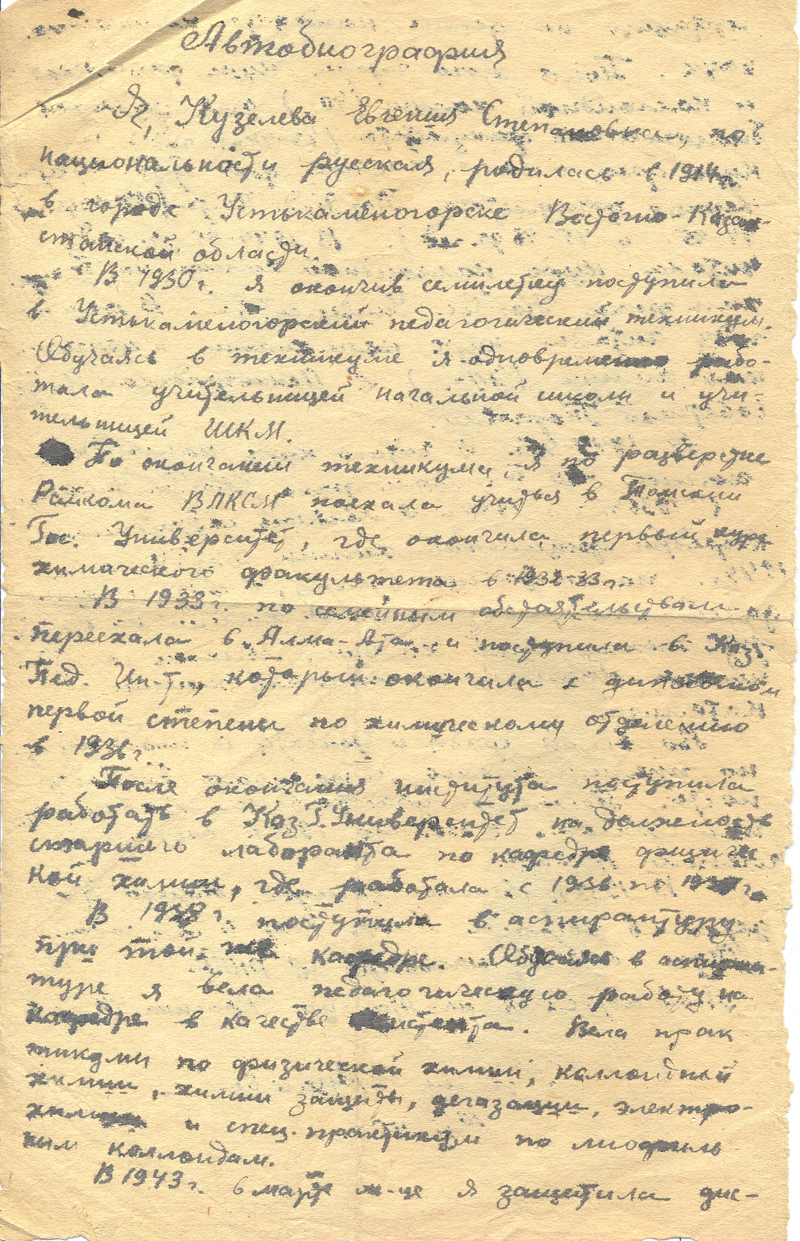 Автобиография
Я, Кузелева Евгения Степановна, по
национальности русская, родилась в 1914 г.
в городе Устькаменогорске Восточно-Казах-
станской области.
В 1930 г. я окончив семилетку поступила
в Устькаменогорский педагогический техникум.
Обучаясь в техникуме я одновременно рабо-
тала учительницей начальной школы и учи-
тельницей ШКМ.
По окончании техникума, я по разверстке
Райкома ВЛКСМ поехала учиться в Томский
Гос. Университет, где окончила первый курс
химического факультета в 1932-33 г.
В 1933 г. по семейным обстоятельствам
переехала в Алма-Ата и поступила в Каз.
Пед. Ин-т., который окончила с дипломом
первой степени по химическому отделению
в 1936 г.
После окончания института поступила
работать в Каз.Г.Университет на должность
старшего лаборанта по кафедре физичес-
кой химии, где работала с 1936 по г.
В г. поступила в аспирантуру
при той же кафедре. Обучаясь в аспиран-
туре я вела педагогическую работу на
кафедре в качестве ассистента. Вела прак
тикумы по физической химии, коллоидной
химии, химии защиты, дегазации, электро-
химии и спец. практикум по лиофиль
ным коллоидам.
В 1943 г. в марте м-це я защитила дис-